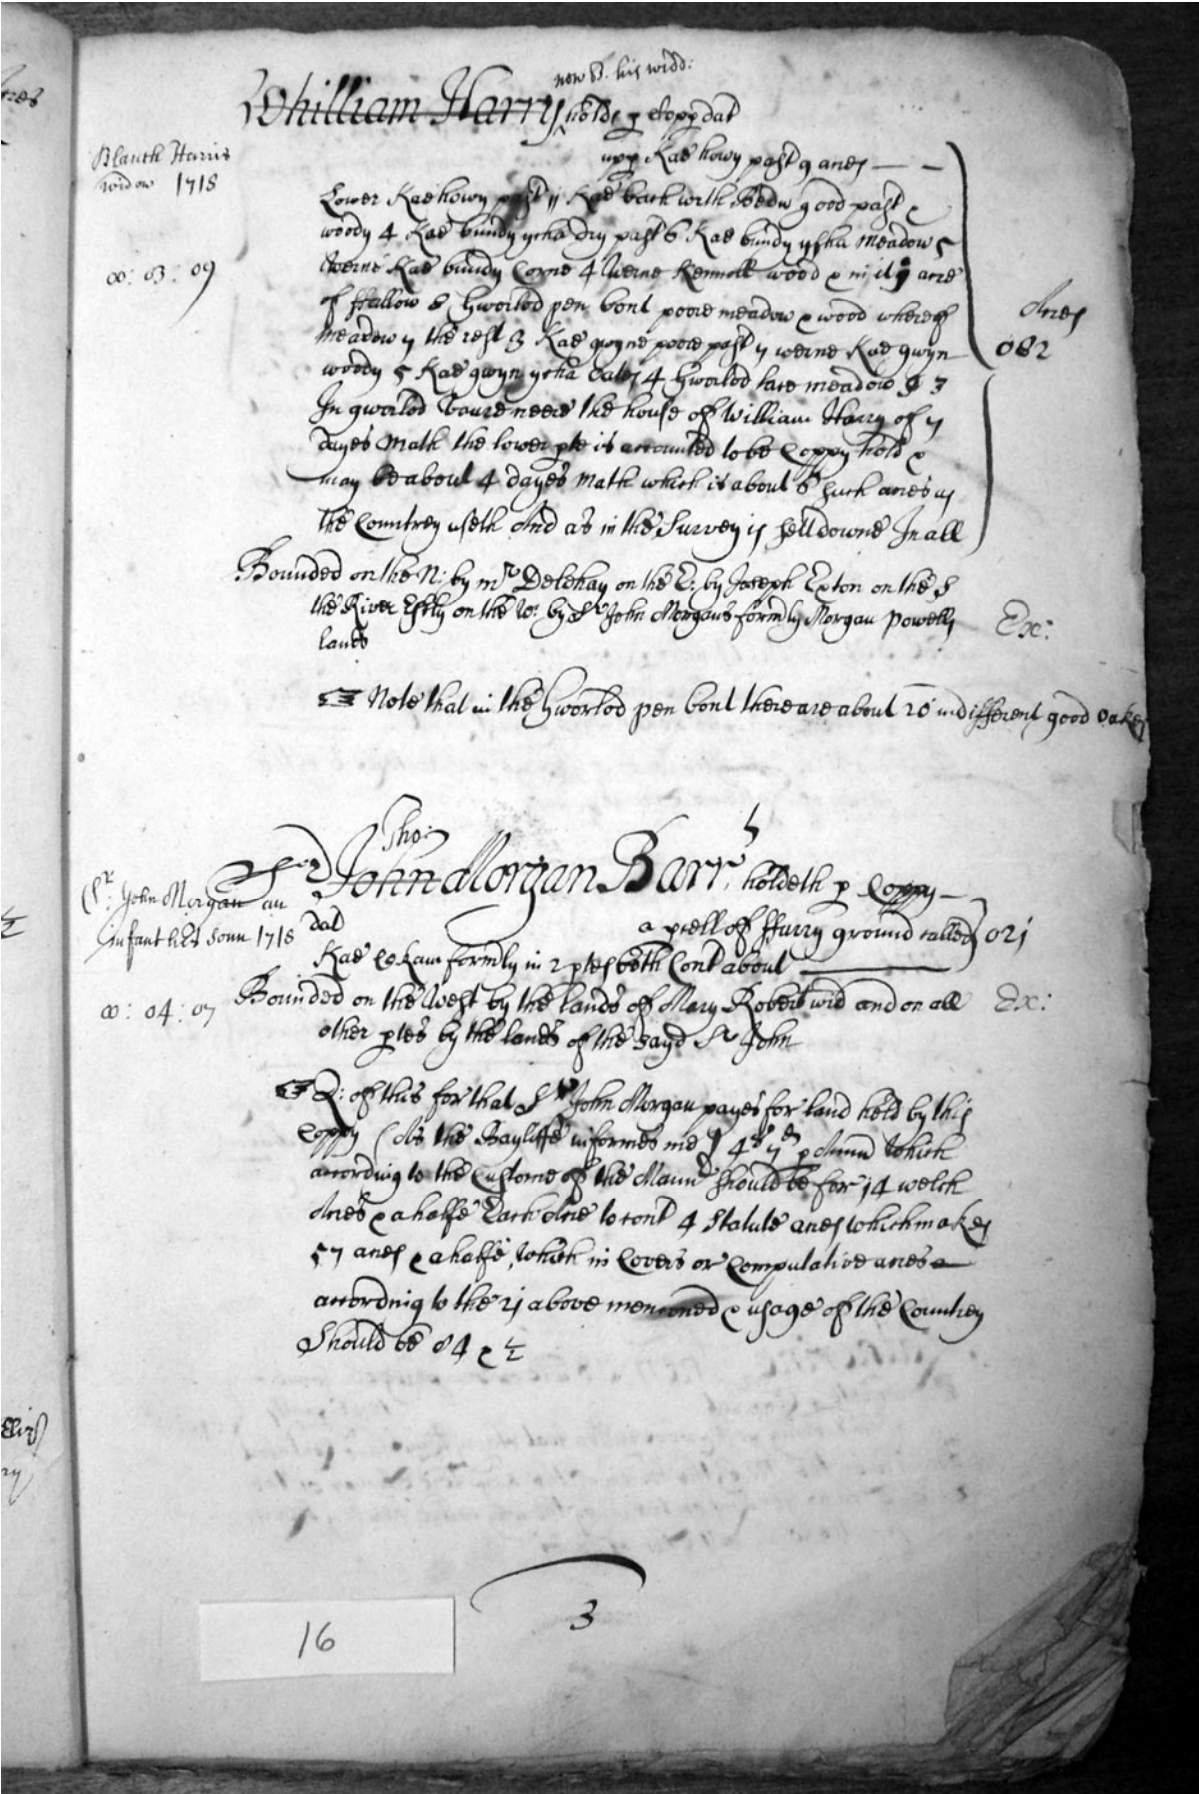 now B. his widd:
Whilliam Harry holds p Copp dat
Blanch Harris
widow 1718
upp Kae howy past 9 acres
Lower Kae howy past 11 Kae bach with Bedw good past &
woody 4 Kae bundy ycha dry past 6 Kae bundy ysha meadow 5
Werne Kae bundy Corne 4 Werne Kennoll wood & in it 9 acre
00: 03: 09
of ffallow 8 Gworlod pen bont poore meadow & wood whereof
Acres
meadow 7 the rest 3 Kae gwyne poore past 7 werne Kae gwyn
082
woody 5 Kae gwyn ycha Oates 4 Gworlod hace meadow 3
In gworlod vaure neere the house of William Harry of 7
dayes math the lower pte is accounted to be Coppy hold &
may be about 4 dayes math which is about 6 such acres as
the Countrey useth And as in the Survey is sett downe In all
Bounded on the N: by mr Delehay on the E: by Joseph Exton on the S
the River Eskly on the W: by Sr John Morgans formly Morgan Powells
Ex:
lands
Note that in the Gworlod pen bont there are about 20 indifferent good Oakes
Tho:
Sr John Morgan Barrt holdeth p Coppy
Sr: John Morgan an
infant his sonn 1718
dat a pcell of ffurry ground called
021
Kae Cokam formly in 2 ptes both Cont about
00: 04: 07
Bounded on the West by the lands of Mary Robert wid and on all
Ex:
other ptes by the lands of the sayd Sr John
Q: of this for that Sr John Morgan payes for land held by this
Coppy (As the Bayliffe informes me) 4s 7d p Annu Which
according to the Custome of the Mannr should be for 14 welch
Acres & a halfe Each Acre to cont 4 Statute acres which makes
57 acres & a halfe, Which in Covers or Computative acres
according to the 21 above mencioned & usage of the Countrey
Should be 84 & 1/2
3
16